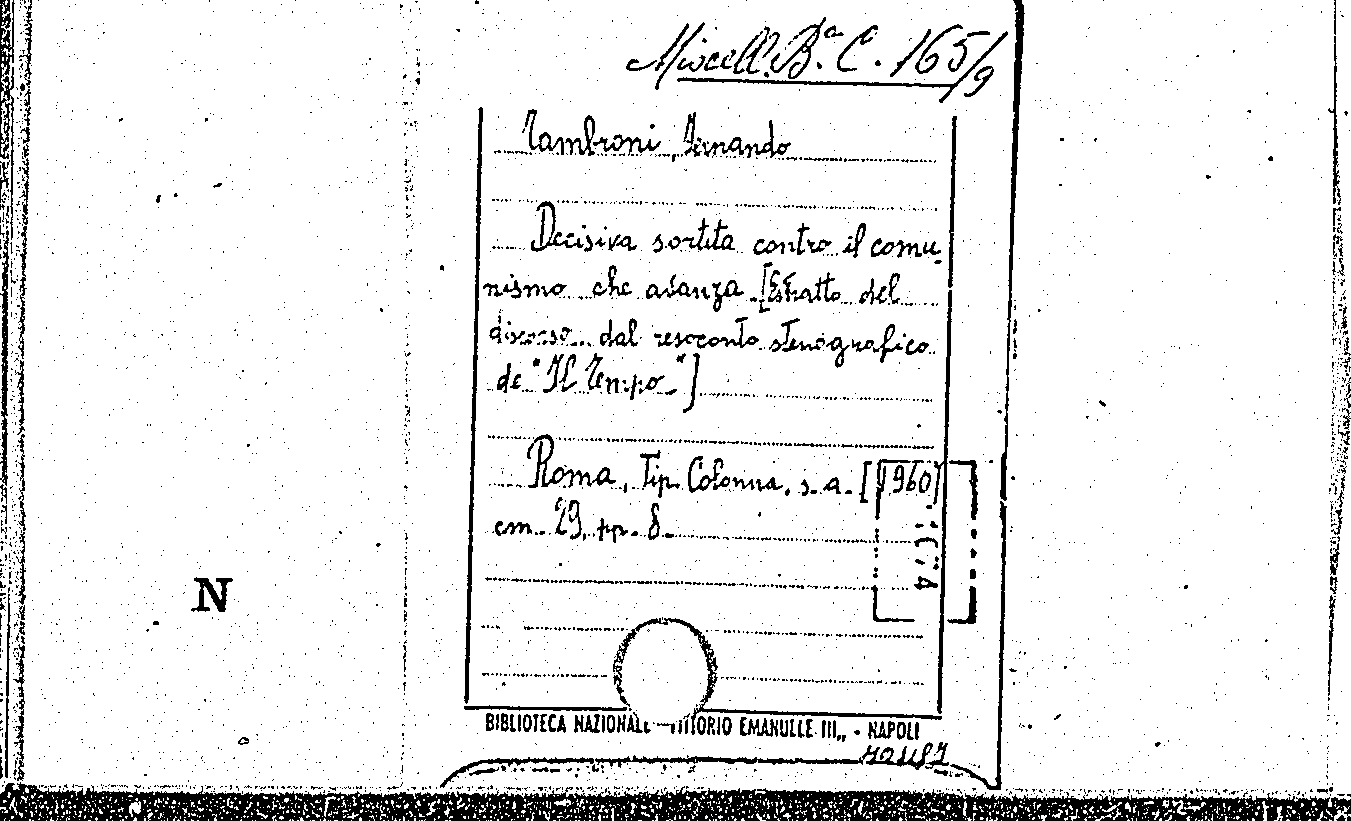 Miscell. Bª. C. 165/9
Tambroni, Fernando
Decisiva sortita contro il comu-
nismo che avanza [Estratto del
discorso dal resoconto stenografico
de "Il Tempo"]
Roma, Tip. Colonna, s. a. [1960]
cm. 29, pp. 8.
N
BIBLIOTECA NAZIONALE VITTORIO EMANUELE III„ - NAPOLI